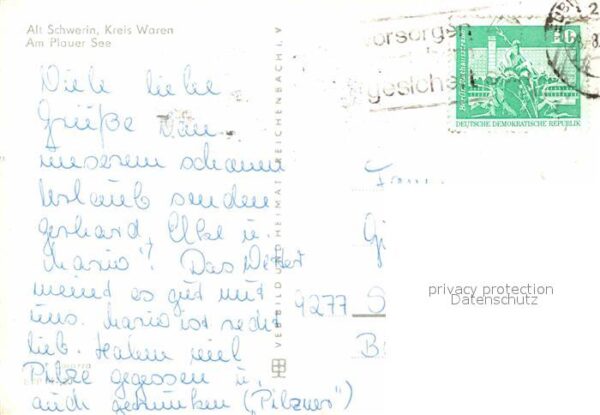 Alt Schwerin, Kreis Waren
Am Plauer See
Viele liebe
Grüße von
unserem schönen
Urlaub senden
Gerhard, Elke u.
"Mario"! Das Wetter
meint es gut mit
uns. Mario ist recht
lieb. Haben viel
Pilze gegessen u.
auch getrunken ("Pilzner")
VEB BILD UND HEIMAT REICHENBACH I. V
vorsorgen
gesichert
10
DEUTSCHE DEMOKRATISCHE REPUBLIK
9277 S
B
privacy protection
Datenschutz